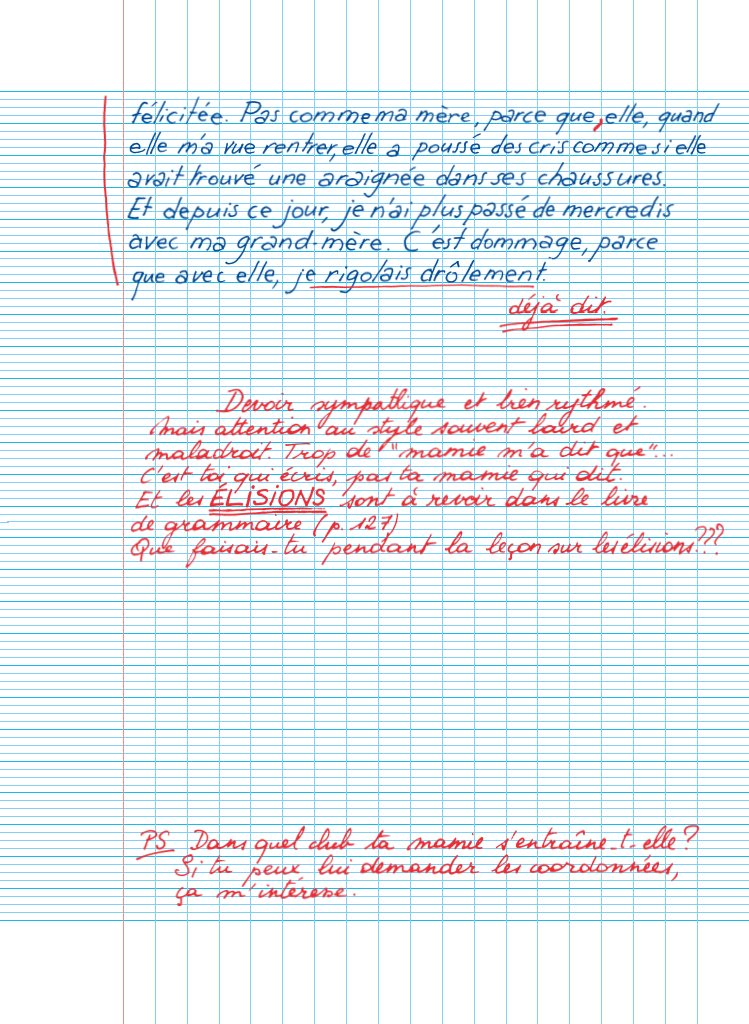 félicitée. Pas comme ma mère, parce que, elle, quand
elle m'a vue rentrer, elle a poussé des cris comme si elle
avait trouvé une araignée dans ses chaussures.
Et depuis ce jour, je n'ai plus passé de mercredis
avec ma grand-mère. C'est dommage, parce
que avec elle, je rigolais drôlement.
déjà dit.
Devoir sympathique et bien rythmé.
Mais attention au style souvent lourd et
maladroit. Trop de "mamie m'a dit que"...
C'est toi qui écris, pas ta mamie qui dit.
Et les ÉLISIONS sont à revoir dans le livre
de grammaire (p. 127)
Que faisais-tu pendant la leçon sur les élisions???
PS Dans quel club ta mamie s'entraîne-t-elle?
Si tu peux lui demander les coordonnées,
ça m'intéresse.